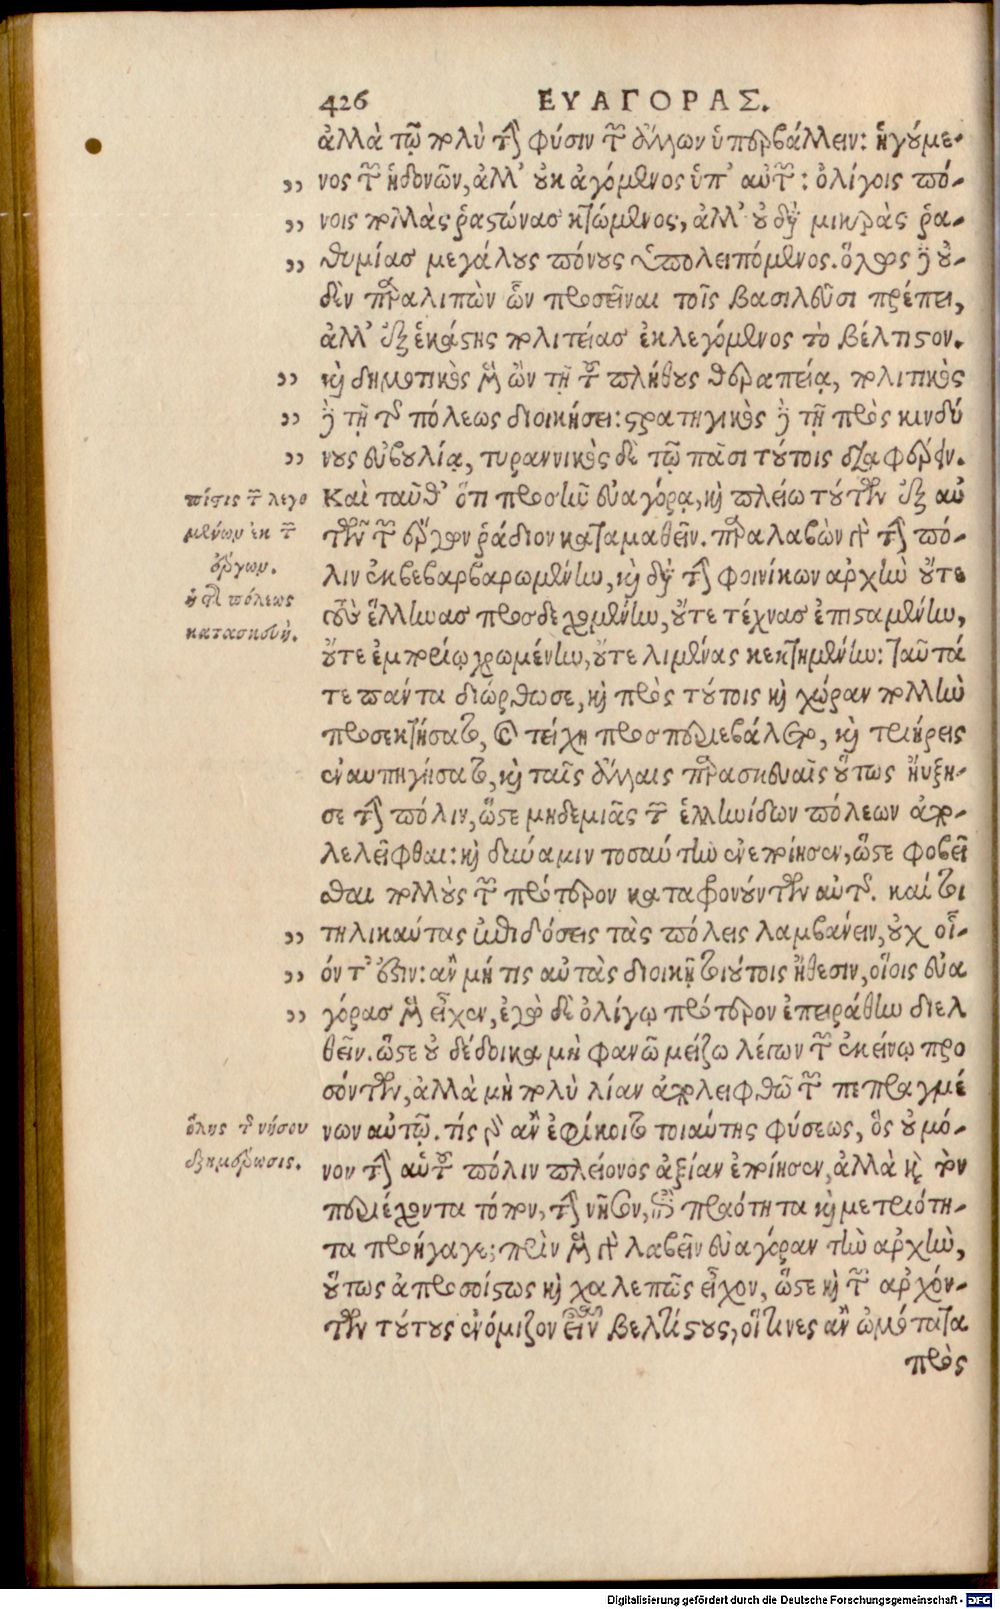 426 ΕΥΑΓΟΡΑΣ.
ἀλλὰ τῷ πολὺ τὴν φύσιν τῶν ἄλλων ὑπερβάλλειν: ἡγούμε-
„ νος τῶν ἡδονῶν, ἀλλ' οὐκ ἀγόμενος ὑπ' αὐτῶν: ὀλίγοις πό-
„ νοις πολλὰς ῥαστώνας κτώμενος, ἀλλ' οὐ διὰ μικρὰς ῥα-
„ θυμίας μεγάλους πόνους ὑπολειπόμενος. ὅλως δὲ οὐ-
δὲν παραλιπὼν ὧν προσεῖναι τοῖς βασιλεῦσι πρέπει,
ἀλλ' ἐξ ἑκάστης πολιτείας ἐκλεγόμενος τὸ βέλτιστον.
„ καὶ δημοτικὸς μὲν ὢν τῇ τοῦ πλήθους θεραπείᾳ, πολιτικὸς
„ δὲ τῇ τῆς πόλεως διοικήσει: στρατηγικὸς δὲ τῇ πρὸς κινδύ
„ νους εὐβουλίᾳ, τυραννικὸς δὲ τῷ πᾶσι τούτοις διαφέρειν.
Καὶ ταῦθ' ὅτι προσῆν εὐαγόρᾳ, καὶ πλείω τούτων ἐξ αὐ
τῶν τῶν ἔργων ῥάδιον καταμαθεῖν. παραλαβὼν γὰρ τὴν πό-
λιν ἐκβεβαρβαρωμένην, καὶ διὰ τὴν φοινίκων ἀρχὴν οὔτε
τοὺς ἕλληνας προσδεχομένην, οὔτε τέχνας ἐπισταμένην,
οὔτε ἐμπορίῳ χρωμένην, οὔτε λιμένας κεκτημένην: ταῦτά
τε πάντα διώρθωσε, καὶ πρὸς τούτοις καὶ χώραν πολλὴν
προσεκτήσατο, καὶ τείχη προσπεριεβάλετο, καὶ τριήρεις
ἐναυπηγήσατο, καὶ ταῖς ἄλλαις παρασκευαῖς οὕτως ηὔξη-
σε τὴν πόλιν, ὥστε μηδεμιᾶς τῶν ἑλληνίδων πόλεων ἀπο-
λελεῖφθαι: καὶ δύναμιν τοσαύτην ἐνεποίησεν, ὥστε φοβεῖ
σθαι πολλοὺς τῶν πρότερον καταφρονούντων αὐτῆς. καί τοι
„ τηλικαύτας ἐπιδόσεις τὰς πόλεις λαμβάνειν, οὐχ οἷ-
„ όν τ' ἐστὶν: ἂν μή τις αὐτὰς διοικῇ τοιούτοις ἤθεσιν, οἵοις εὐα
„ γόρας μὲν εἶχεν, ἐγὼ δὲ ὀλίγῳ πρότερον ἐπειράθην διελ
θεῖν. ὥστε οὐ δέδοικα μὴ φανῶ μείζω λέγων τῶν ἐκείνῳ προ
σόντων, ἀλλὰ μὴ πολὺ λίαν ἀπολειφθῶ τῶν πεπραγμέ
νων αὐτῷ. τίς γὰρ ἂν ἐφίκοιτο τοιαύτης φύσεως, ὃς οὐ μό-
νον τὴν αὑτοῦ πόλιν πλείονος ἀξίαν ἐποίησεν, ἀλλὰ καὶ τὸν
περιέχοντα τόπον, τὴν νῆσον, ἐπὶ πραότητα καὶ μετριότη-
τα προήγαγε; πρὶν μὲν γὰρ λαβεῖν εὐαγόραν τὴν ἀρχὴν,
οὕτως ἀπροσοίστως καὶ χαλεπῶς εἶχον, ὥστε καὶ τῶν ἀρχόν-
των τούτους ἐνόμιζον εἶναι βελτίστους, οἵτινες ἂν ὠμότατα
πρὸς
πίστις τῶν λεγο
μένων ἐκ τῶν
ἔργων.
ἡ τῆς πόλεως
κατασκευή.
ὅλης τῆς νήσου
ἐξημέρωσις.
Digitalisierung gefördert durch die Deutsche Forschungsgemeinschaft - DFG